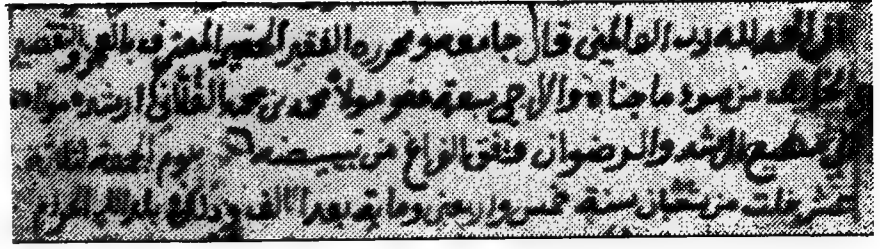 الحمد لله رب العالمين قال جامعه ومحرره الفقير الحقير المعترف بالعجز والتقصير
الخائف من سوء ما جناه والراجي سعة عفو مولاه محمد بن محمد الفلاني ارشده مولاه
والرضوان وفق الفراغ من تبييضه يوم الجمعة لثلاثة
عشر خلت من شعبان سنة خمس واربعين وماية بعد الالف وذلك ببلد الله الحرام